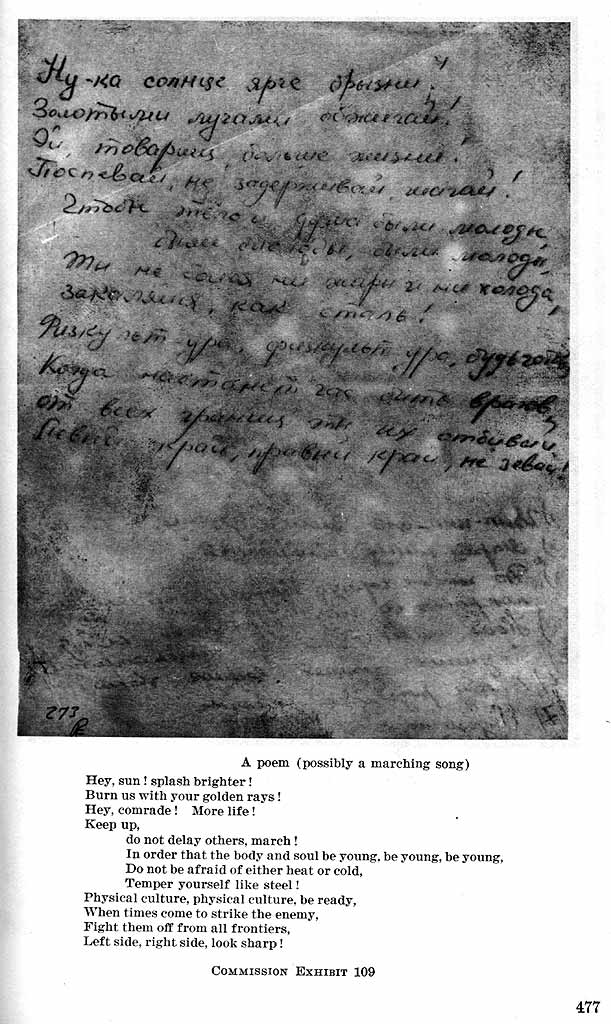 Ну-ка солнце ярче брызни!
Золотыми лучами обжигай!
Эй, товарищ, больше жизни!
Поспевай, не задерживай, шагай!
Чтобы тело и душа были молоды
были молоды, были молоды,
Ты не бойся ни жары и ни холода,
Закаляйся, как сталь!
Физкульт ура, физкульт ура, будь готов
Когда настанет час бить врагов,
от всех границ ты их отбивай
Левый край, правый край, не зевай!
273
A poem (possibly a marching song)
Hey, sun! splash brighter!
Burn us with your golden rays!
Hey, comrade! More life!
Keep up,
do not delay others, march!
In order that the body and soul be young, be young, be young,
Do not be afraid of either heat or cold,
Temper yourself like steel!
Physical culture, physical culture, be ready,
When times come to strike the enemy,
Fight them off from all frontiers,
Left side, right side, look sharp!
COMMISSION EXHIBIT 109
477